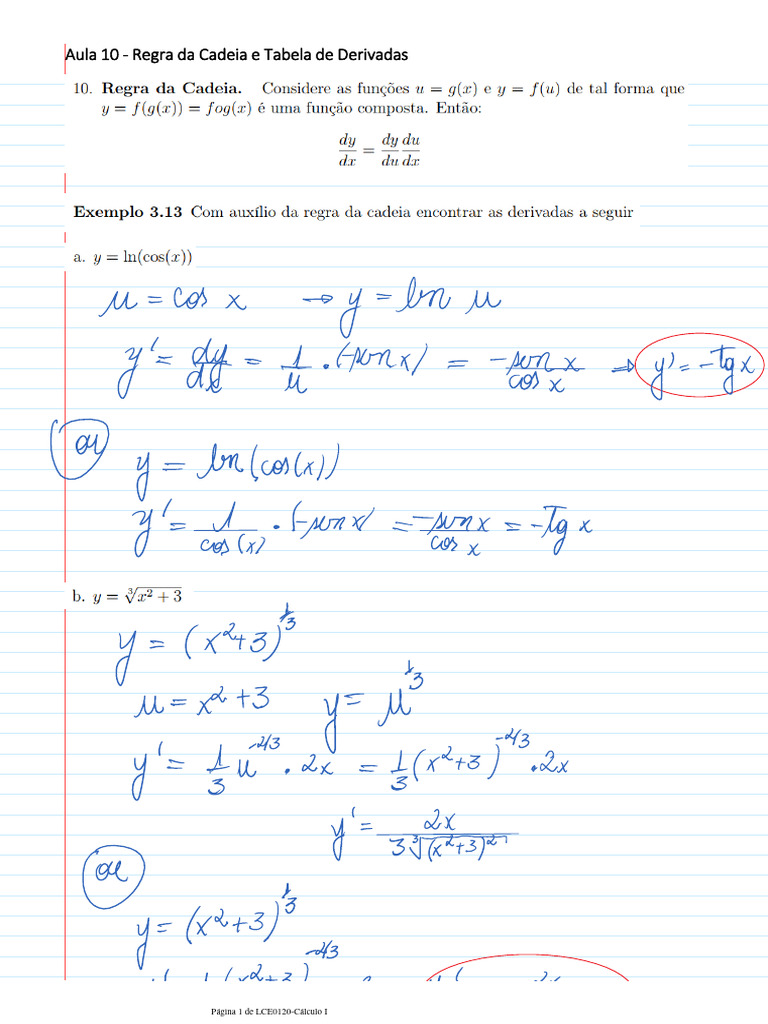 Aula 10 - Regra da Cadeia e Tabela de Derivadas
10. Regra da Cadeia. Considere as funções u = g(x) e y = f(u) de tal forma que
y = f(g(x)) = fog(x) é uma função composta. Então:
dy/dx = dy/du du/dx
Exemplo 3.13 Com auxílio da regra da cadeia encontrar as derivadas a seguir
a. y = ln(cos(x))
u = cos x → y = ln u
y' = dy/dx = 1/u · (-sen x) = -sen x/cos x ⇒ y' = -Tg x
ou
y = ln(cos(x))
y' = 1/cos(x) · (-sen x) = -sen x/cos x = -Tg x
b. y = ∛(x² + 3)
y = (x²+3)^1/3
u = x² + 3 y = u^1/3
y' = 1/3 u^-2/3 · 2x = 1/3 (x²+3)^-2/3 · 2x
y' = 2x/3∛(x²+3)²
ou
y = (x²+3)^1/3
(x²+3)^-2/3
Página 1 de LCE0120-Cálculo I